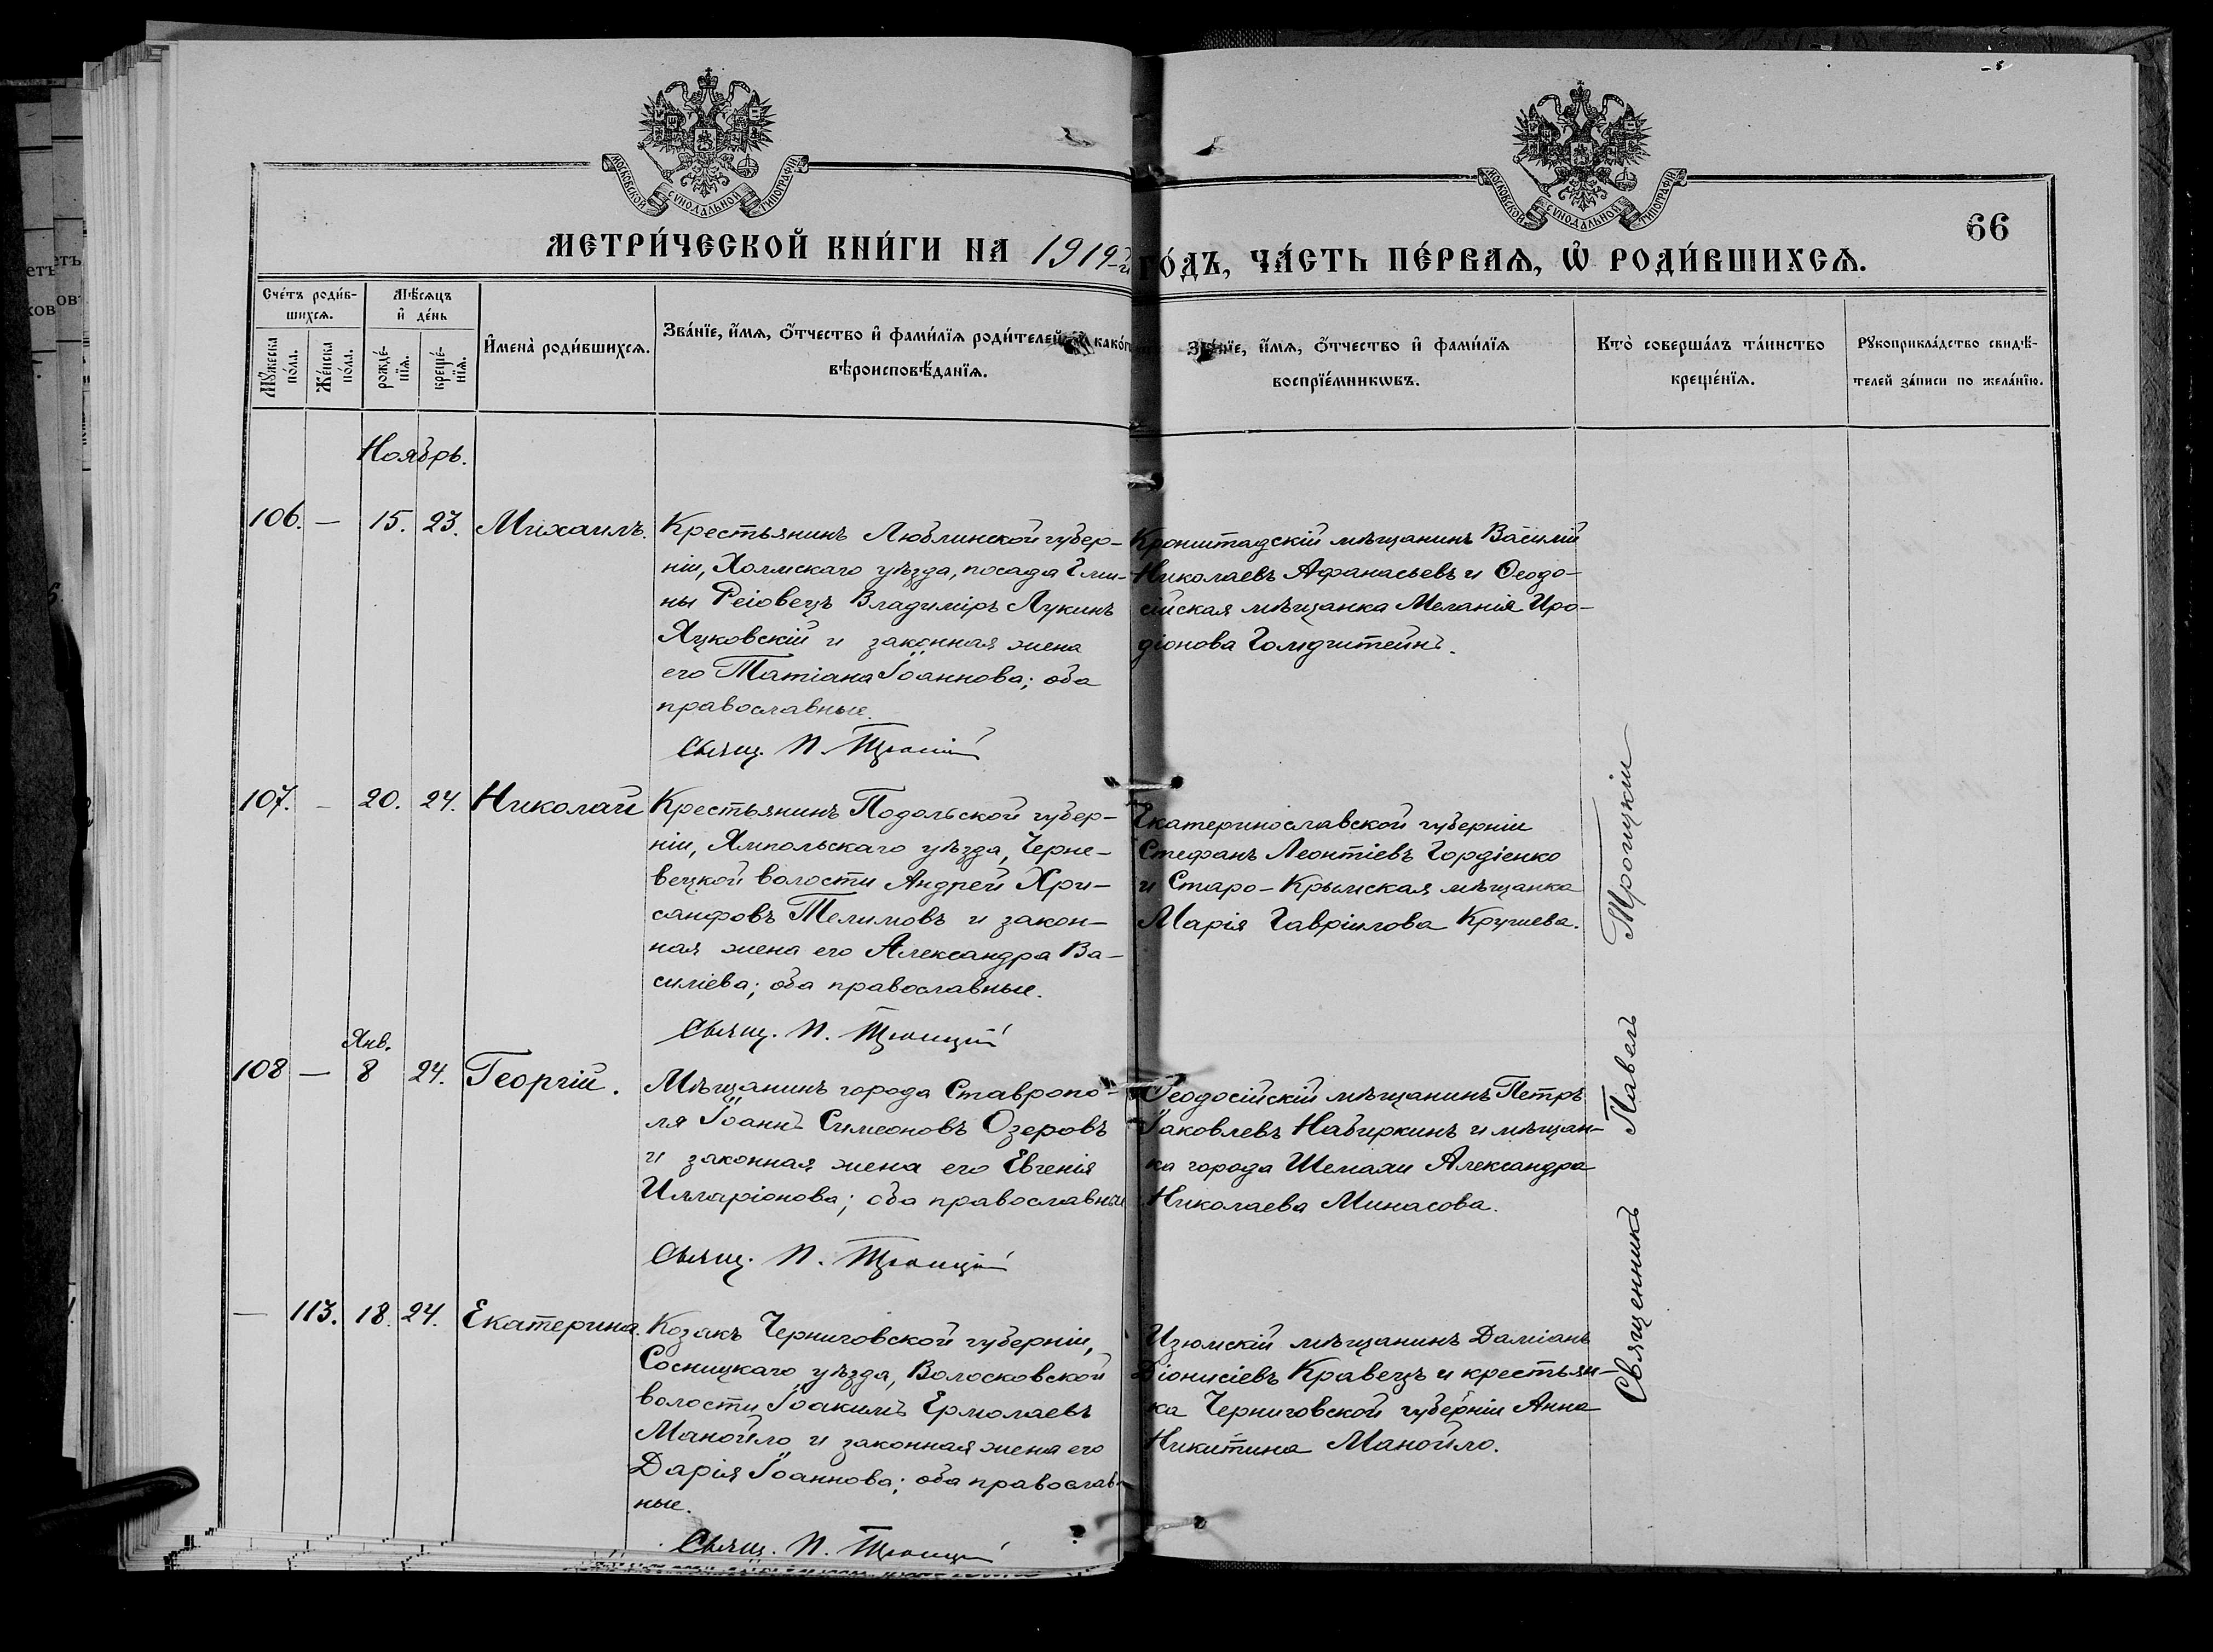 МОСКОВСКОЙ СѴНОДАЛЬНОЙ ТИПОГРАФІИ
МОСКОВСКОЙ СѴНОДАЛЬНОЙ ТИПОГРАФІИ
66
МЕТРИ́ЧЕСКОЙ КНИ́ГИ НА 1919-й ГО́ДЪ, ЧА́СТЬ ПЕ́РВАѦ, Ѡ҆ РОДИ́ВШИХСѦ.
Сче́тъ роди́в-
шихсѧ.
Мꙋ́жеска
по́ла.
Же́нска
по́ла.
Мѣ́сѧцъ
и҆ де́нь
рожде́-
нїѧ.
креще́-
нїѧ.
И҆мена̀ роди́вшихсѧ.
Зва́нїе, и҆́мѧ, ѻ҆́тчество и҆ фами́лїѧ роди́телей, и҆ како́гѡ
вѣроисповѣ́данїѧ.
Зва́нїе, и҆́мѧ, ѻ҆́тчество и҆ фами́лїѧ
воспрїе́мникѡвъ.
Кто̀ соверша́лъ та́инство
креще́нїѧ.
Рꙋкоприкла́дство свидѣ́-
телей за́писи по жела́нїю.
Ноябрь.
106. — 15. 23. Михаилъ.
Крестьянинъ Люблинской губер-
ніи, Холмскаго уѣзда, посада Гми-
ны Реіовецъ Владиміръ Лукинъ
Яцковскій и законная жена
его Татіана Іоаннова; оба
православные.
Свящ. П. Троицкій
Кронштадскій мѣщанинъ Василій
Николаевъ Афанасьевъ и Ѳеодо-
сійская мѣщанка Меланія Иро-
діонова Голдштейнъ.
107. — 20. 24. Николай
Крестьянинъ Подольской губер-
ніи, Ямпольскаго уѣзда, Черне-
вецкой волости Андрей Хри-
санфовъ Телимовъ и закон-
ная жена его Александра Ва-
силіева; оба православные.
Свящ. П. Троицкій
Екатеринославской губерніи
Стефанъ Леонтіевъ Гордіенко
и Старо-Крымская мѣщанка
Марія Гавріилова Кручиева.
Янв.
108 — 8 24. Георгій.
Мѣщанинъ города Ставропо-
ля Іоаннъ Симеоновъ Озеровъ
и законная жена его Евгенія
Илларіонова; оба православные
Свящ. П. Троицкій
Ѳеодосійскій мѣщанинъ Петръ
Іаковлевъ Набиркинъ и мѣщан-
ка города Шемахи Александра
Николаева Минасова.
— 113. 18. 24. Екатерина.
Козакъ Черниговской губерніи,
Сосницкаго уѣзда, Волосковской
волости Іоакимъ Ермолаевъ
Манойло и законная жена его
Дарія Іоаннова; оба православ-
ные.
Свящ. П. Троицкій
Изюмскій мѣщанинъ Даміанъ
Діонисіевъ Кравецъ и крестьян-
ка Черниговской губерніи Анна
Никитина Манойло.
Священникъ Павелъ Троицкій